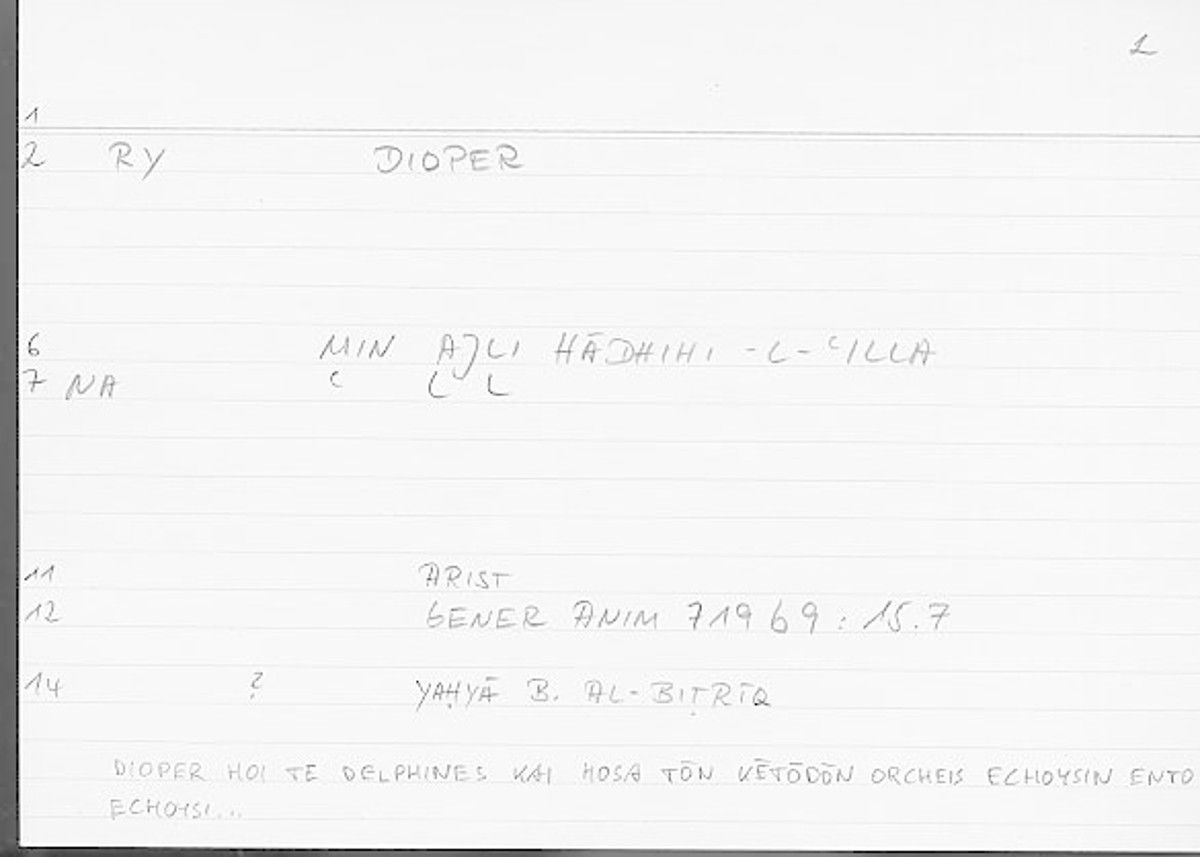 1
1
2 RY DIOPER
6 MIN AJLI HĀDHIHI -L-ʿILLA
7 NA ʿ L L
11 ARIST
12 GENER ANIM 719 69 : 15.7
14 ? YAḤYĀ B. AL-BIṬRĪQ
DIOPER HOI TE DELPHINES KAI HOSA TŌN KĒTŌDŌN ORCHEIS ECHOYSIN ENTO
ECHOYSI...